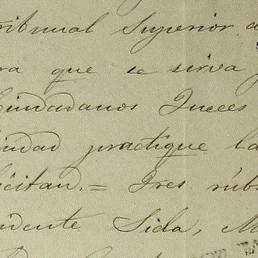 ribunal Superior d
ra que se sirva
Ciudadanos Jueces
iudad practique la
icitan.= Tres rúb
idente Sida, M